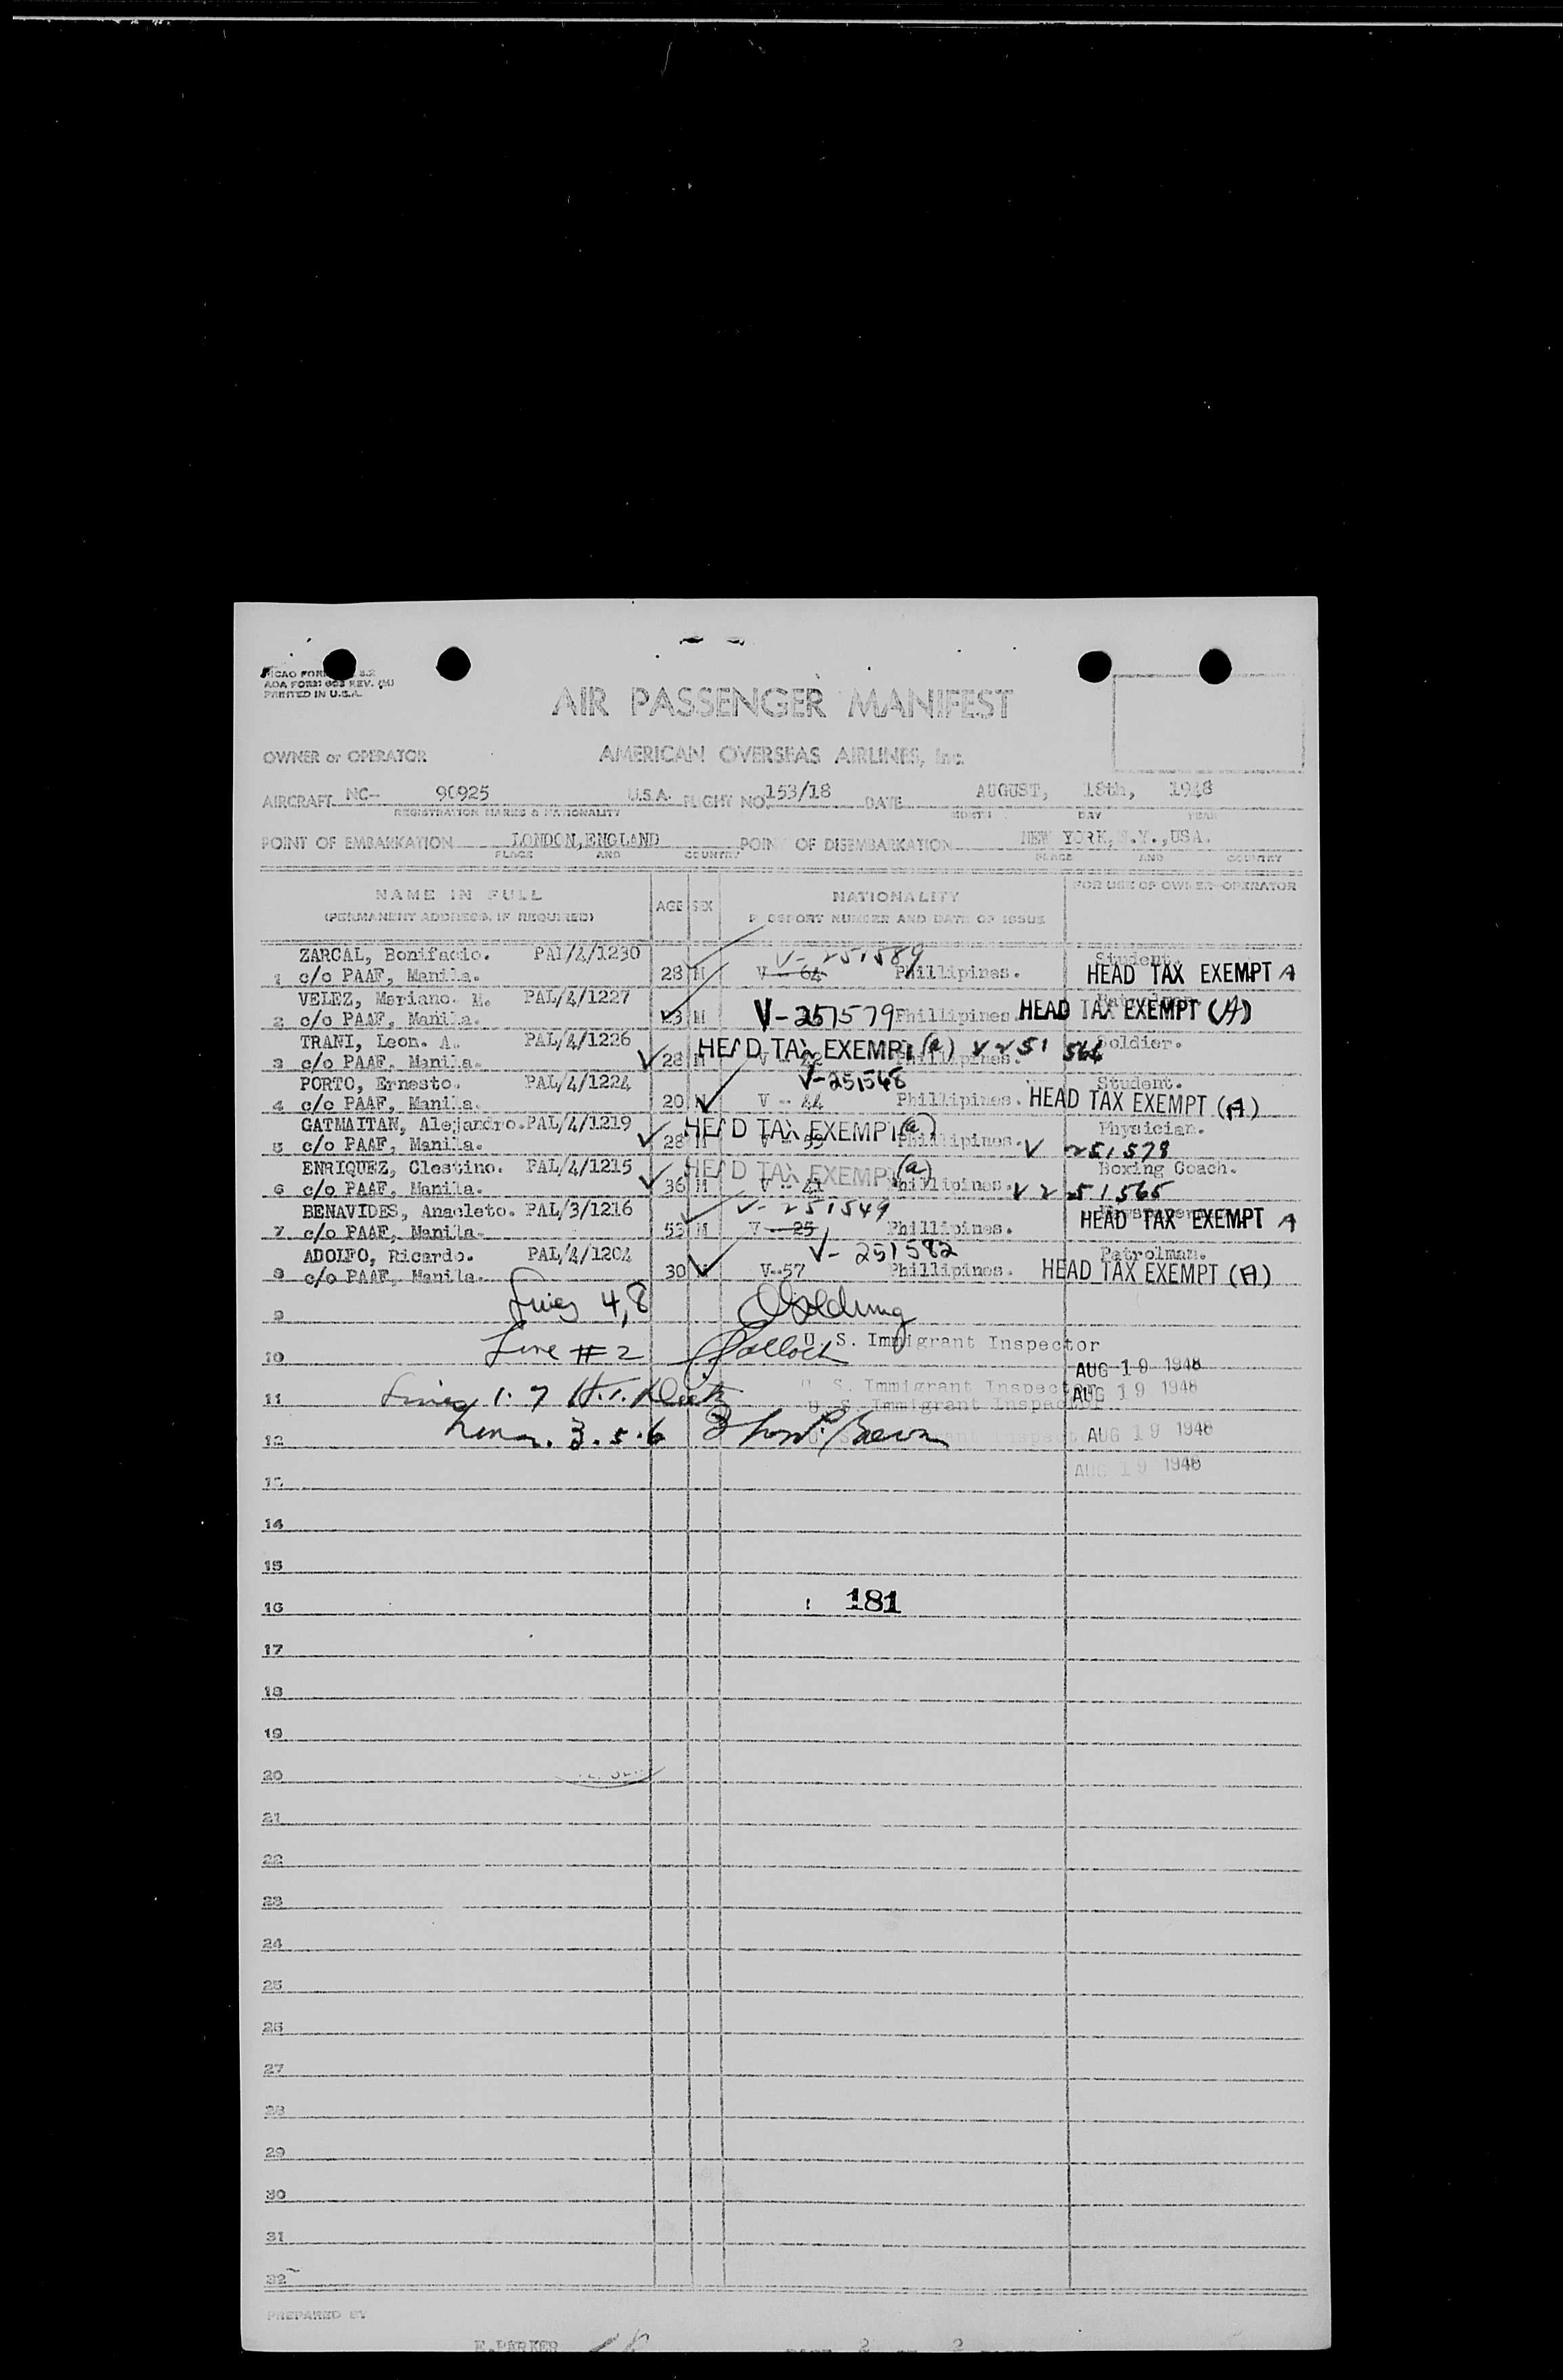 ICAO FORM
AOA FORM 603 REV. (M)
PRINTED IN U.S.A.
AIR PASSENGER MANIFEST
OWNER or OPERATOR AMERICAN OVERSEAS AIRLINES, Inc.
AIRCRAFT NC- 90925 U.S.A. FLIGHT NO. 153/18 DATE AUGUST, 18th, 1948
REGISTRATION MARKS & NATIONALITY MONTH DAY YEAR
POINT OF EMBARKATION LONDON, ENGLAND POINT OF DISEMBARKATION NEW YORK, N.Y., USA.
PLACE AND COUNTRY PLACE AND COUNTRY
NAME IN FULL AGE SEX NATIONALITY FOR USE OF OWNER-OPERATOR
(PERMANENT ADDRESS, IF REQUIRED) PASSPORT NUMBER AND DATE OF ISSUE
ZARCAL, Bonifacio. PAL/4/1230 V-251589 Student.
1 c/o PAAF, Manila. 28 M V - 64 Phillipines. HEAD TAX EXEMPT A
VELEZ, Mariano. M. PAL/4/1227
2 c/o PAAF, Manila. 23 M V-251579 Phillipines. HEAD TAX EXEMPT (A)
TRANI, Leon. A. PAL/4/1226 HEAD TAX EXEMPT (a) V 251 566 Soldier.
3 c/o PAAF, Manila. 28 M Phillipines.
PORTO, Ernesto. PAL/4/1224 V-251548 Student.
4 c/o PAAF, Manila. 20 M V - 44 Phillipines. HEAD TAX EXEMPT (A)
GATMAITAN, Alejandro. PAL/4/1219 HEAD TAX EXEMPT (a) Physician.
5 c/o PAAF, Manila. 28 M V - 59 Phillipines. V 251578
ENRIQUEZ, Clestino. PAL/4/1215 HEAD TAX EXEMPT (a) Boxing Coach.
6 c/o PAAF, Manila. 36 M V - 41 Phillipines. V 251565
BENAVIDES, Anacleto. PAL/3/1216 V-251549 HEAD TAX EXEMPT A
7 c/o PAAF, Manila. 53 M V - 25 Phillipines.
ADOLFO, Ricardo. PAL/4/1204 V-251582 Patrolman.
8 c/o PAAF, Manila. 30 V-57 Phillipines. HEAD TAX EXEMPT (A)
9 Lines 4,8
U. S. Immigrant Inspector
10 Line #2 AUG 19 1948
U. S. Immigrant Inspector AUG 19 1948
11 Lines 1.7 U. S. Immigrant Inspector
12 3.5.6 AUG 19 1948
13 AUG 19 1948
14
15
16 181
17
18
19
20
21
22
23
24
25
26
27
28
29
30
31
32
PREPARED BY
E. PARKER